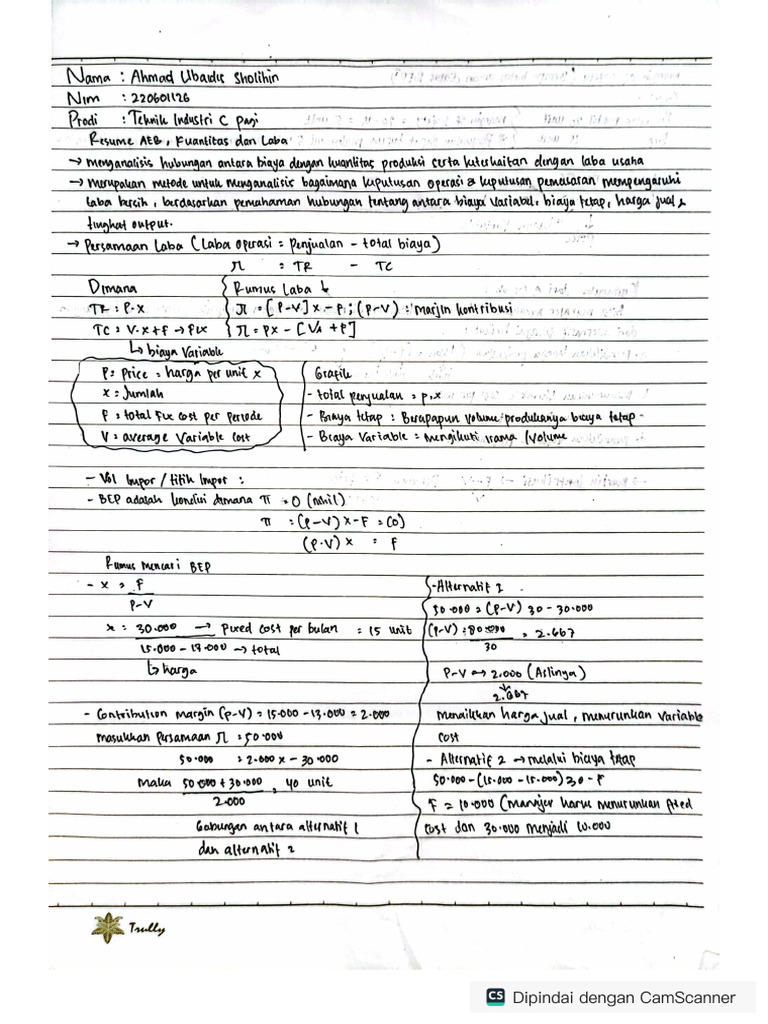 Nama : Ahmad Ubaidis Sholihin
Nim : 220601126
Prodi : Teknik Industri C pagi
Resume AEB, Kuantitas dan Laba
→ menganalisis hubungan antara biaya dengan kuantitas produksi certa keterkaitan dengan laba usaha
→ Merupakan metode untuk menganalisis bagaimana keputusan operasi & keputusan pemasaran mempengaruhi
laba bersih, berdasarkan pemahaman hubungan tentang antara biaya variabel, biaya tetap, harga jual &
tingkat output.
→ Persamaan Laba (Laba operasi = penjualan - total biaya)
π = TR - TC
Dimana
TR = P.X
TC = V.X+F → Fix
↳ biaya Variable
Rumus Laba ↓
π = [P-V] X - F ; (P-V) = Marjin kontribusi
π = PX - [VX + F]
P = Price = harga per unit x
X = Jumlah
F = total Fix cost per periode
V = average Variable cost
Grafik
- total penjualan = p.x
- Biaya tetap : Berapapun volume produksinya biaya tetap -
- Biaya Variable = Mengikuti irama /volume
- Vol Impor / titik Impor :
- BEP adalah kondisi dimana π = 0 (nihil)
π = (P-V) X-F = (0)
(P-V) X = F
Rumus Mencari BEP
- X = F
P-V
X = 30.000 → Fixed cost per bulan = 15 unit
15.000 - 13.000 → total
↳ harga
- Contribution Margin (P-V) = 15.000 - 13.000 = 2.000
Masukkan Persamaan π = 50.000
50.000 = 2.000 x - 30.000
Maka 50.000 + 30.000, 40 unit
2.000
Gabungan antara alternatif 1
dan alternatif 2
- Alternatif 2 .
50.000 = (P-V) 30 - 30.000
(P-V) = 80.000 = 2.667
30
P-V → 2.000 (Aslinya)
2.667
Menaikkan harga jual, menurunkan variable
cost
- Alternatif 2 → melalui biaya tetap
50.000 - (15.000 - 15.000) 30 - F
F = 10.000 (Manajer harus menurunkan Fixed
cost dan 30.000 menjadi 10.000
Trully
CS Dipindai dengan CamScanner